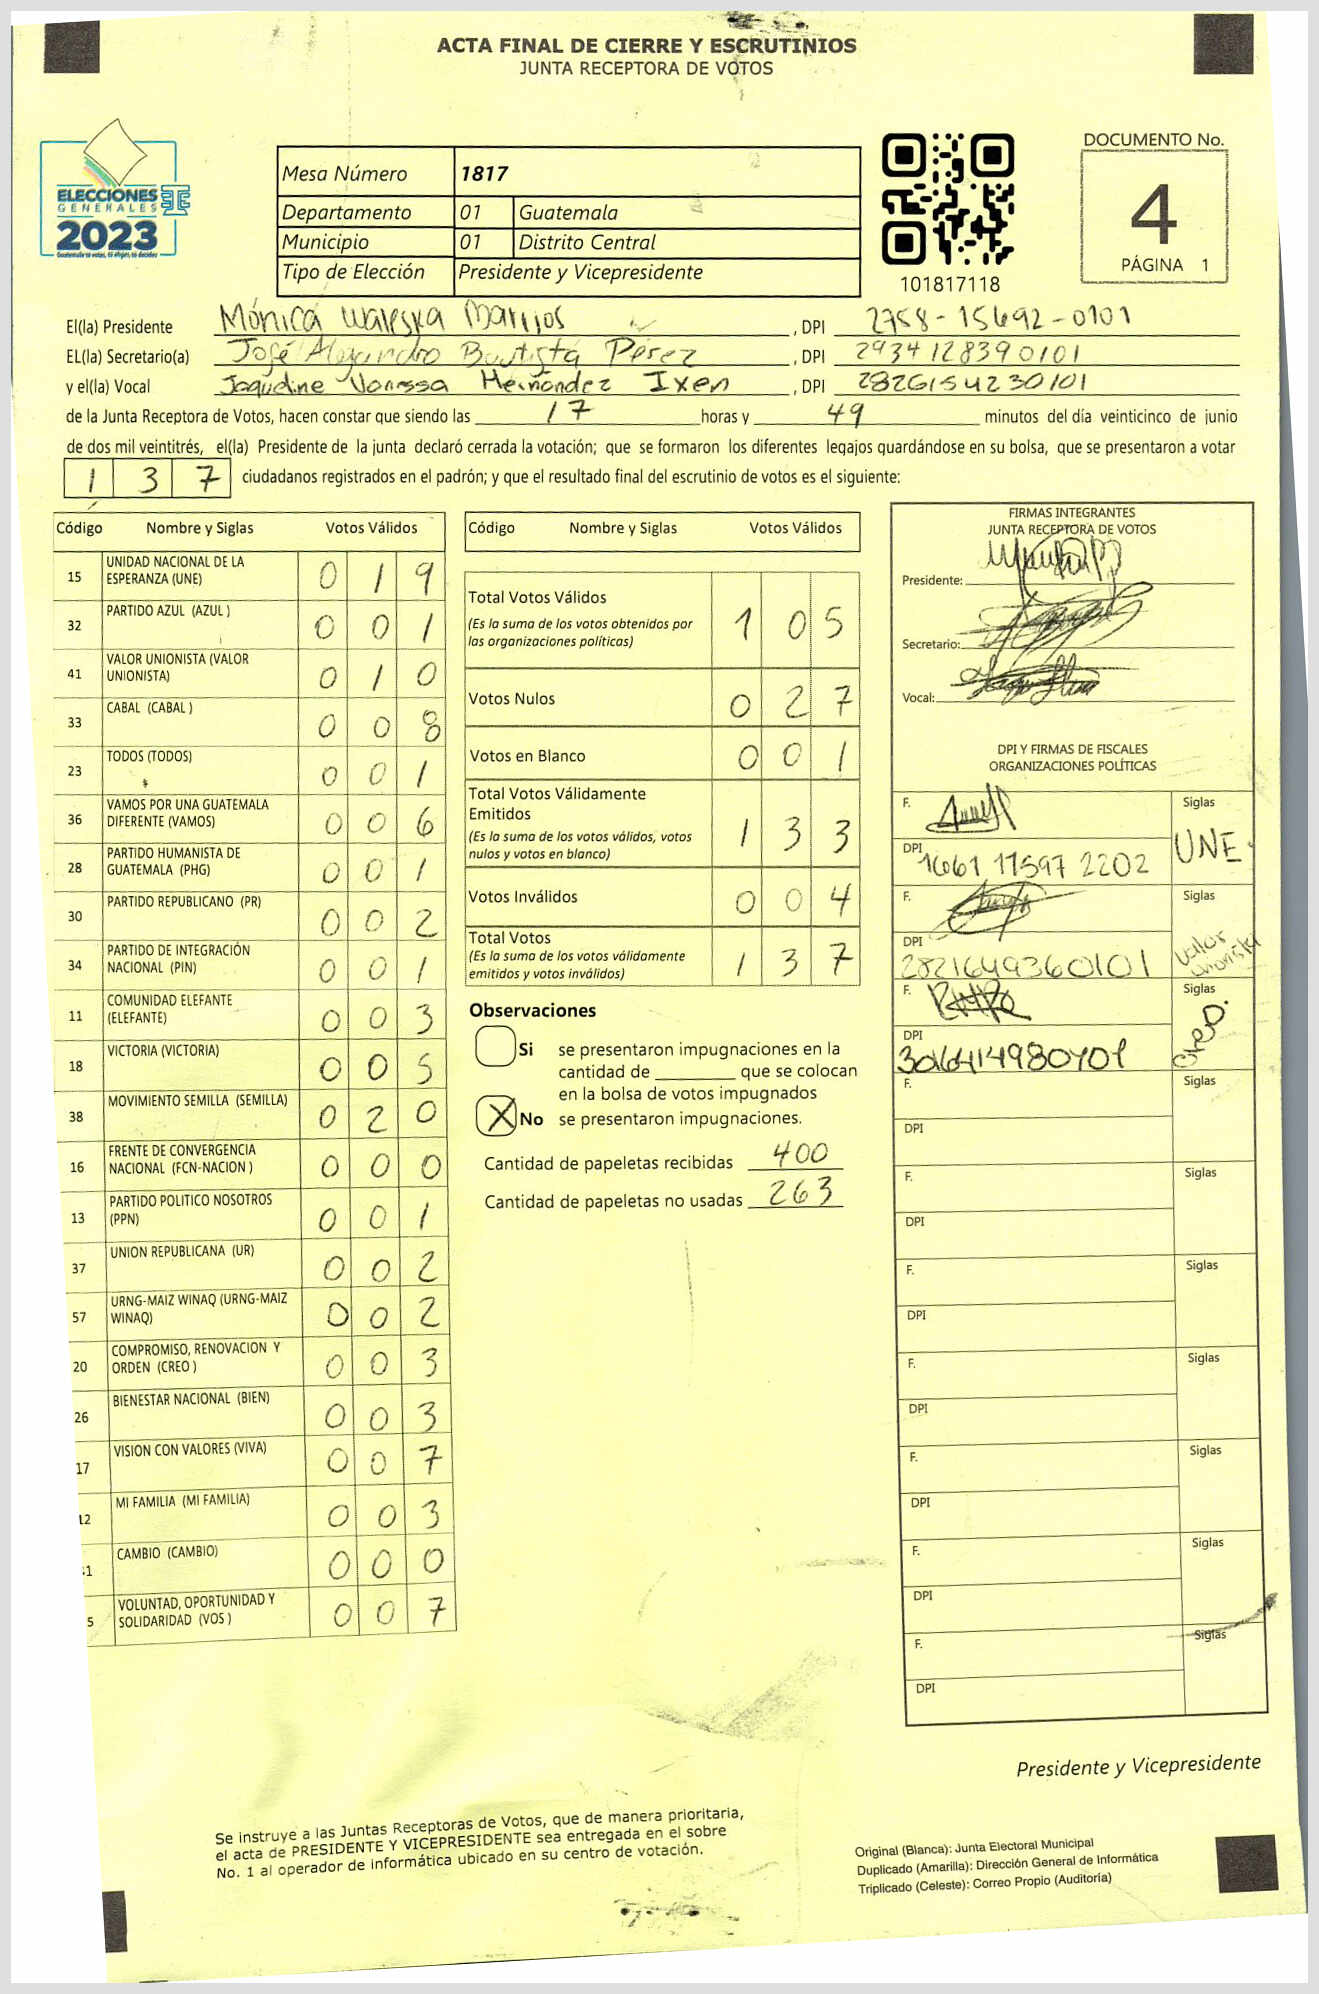 ACTA FINAL DE CIERRE Y ESCRUTINIOS
JUNTA RECEPTORA DE VOTOS
ELECCIONES
GENERALES
2023
Guatemala te votas, tú eliges, tú decides
Mesa Número 1817
Departamento 01 Guatemala
Municipio 01 Distrito Central
Tipo de Elección Presidente y Vicepresidente
101817118
DOCUMENTO No.
4
PÁGINA 1
El(la) Presidente Mónica Waleska , DPI 2758-15692-0101
EL(la) Secretario(a) José Alejandro Bautista Pérez , DPI 2934128390101
y el(la) Vocal Jaqueline Vanessa Hernández Ixen , DPI 2826154230101
de la Junta Receptora de Votos, hacen constar que siendo las 17 horas y 49 minutos del día veinticinco de junio
de dos mil veintitrés, el(la) Presidente de la junta declaró cerrada la votación; que se formaron los diferentes legajos guardándose en su bolsa, que se presentaron a votar
1 3 7 ciudadanos registrados en el padrón; y que el resultado final del escrutinio de votos es el siguiente:
Código Nombre y Siglas Votos Válidos
15 UNIDAD NACIONAL DE LA ESPERANZA (UNE) 0 1 9
32 PARTIDO AZUL (AZUL ) 0 0 1
41 VALOR UNIONISTA (VALOR UNIONISTA) 0 1 0
33 CABAL (CABAL ) 0 0 8
23 TODOS (TODOS) 0 0 1
36 VAMOS POR UNA GUATEMALA DIFERENTE (VAMOS) 0 0 6
28 PARTIDO HUMANISTA DE GUATEMALA (PHG) 0 0 1
30 PARTIDO REPUBLICANO (PR) 0 0 2
34 PARTIDO DE INTEGRACIÓN NACIONAL (PIN) 0 0 1
11 COMUNIDAD ELEFANTE (ELEFANTE) 0 0 3
18 VICTORIA (VICTORIA) 0 0 5
38 MOVIMIENTO SEMILLA (SEMILLA) 0 2 0
16 FRENTE DE CONVERGENCIA NACIONAL (FCN-NACION ) 0 0 0
13 PARTIDO POLITICO NOSOTROS (PPN) 0 0 1
37 UNION REPUBLICANA (UR) 0 0 2
57 URNG-MAIZ WINAQ (URNG-MAIZ WINAQ) 0 0 2
20 COMPROMISO, RENOVACION Y ORDEN (CREO ) 0 0 3
26 BIENESTAR NACIONAL (BIEN) 0 0 3
17 VISION CON VALORES (VIVA) 0 0 7
12 MI FAMILIA (MI FAMILIA) 0 0 3
1 CAMBIO (CAMBIO) 0 0 0
5 VOLUNTAD, OPORTUNIDAD Y SOLIDARIDAD (VOS ) 0 0 7
Código Nombre y Siglas Votos Válidos
Total Votos Válidos 1 0 5
(Es la suma de los votos obtenidos por
las organizaciones políticas)
Votos Nulos 0 2 7
Votos en Blanco 0 0 1
Total Votos Válidamente
Emitidos 1 3 3
(Es la suma de los votos válidos, votos
nulos y votos en blanco)
Votos Inválidos 0 0 4
Total Votos 1 3 7
(Es la suma de los votos válidamente
emitidos y votos inválidos)
Observaciones
Si se presentaron impugnaciones en la
cantidad de ________ que se colocan
en la bolsa de votos impugnados
X No se presentaron impugnaciones.
Cantidad de papeletas recibidas 400
Cantidad de papeletas no usadas 263
FIRMAS INTEGRANTES
JUNTA RECEPTORA DE VOTOS
Presidente:
Secretario:
Vocal:
DPI Y FIRMAS DE FISCALES
ORGANIZACIONES POLÍTICAS
F. Siglas
DPI 1661 11597 2202 UNE
F. Siglas
DPI 2821649360101 Valor Unionista
F. Siglas
DPI 3016414980101
F. Siglas
DPI
F. Siglas
DPI
F. Siglas
DPI
F. Siglas
DPI
F. Siglas
DPI
F. Siglas
DPI
F. Siglas
DPI
Presidente y Vicepresidente
Se instruye a las Juntas Receptoras de Votos, que de manera prioritaria,
el acta de PRESIDENTE Y VICEPRESIDENTE sea entregada en el sobre
No. 1 al operador de informática ubicado en su centro de votación.
Original (Blanca): Junta Electoral Municipal
Duplicado (Amarilla): Dirección General de Informática
Triplicado (Celeste): Correo Propio (Auditoría)